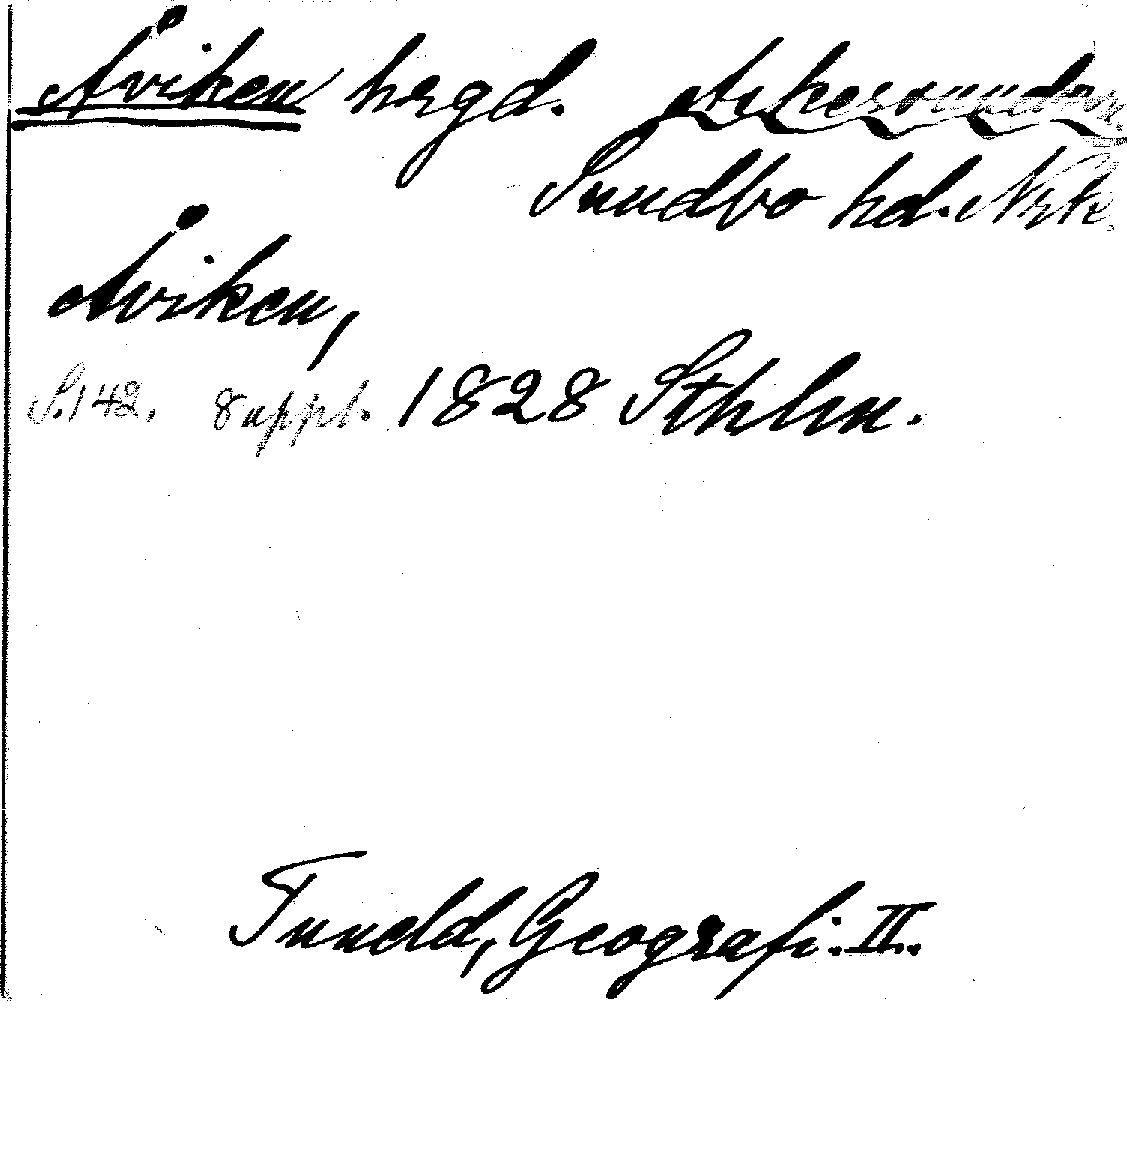 Åviken hrgd. Askersunds sn.
Sundbo hd. Nrk.
Åviken,
S. 142. 8 uppl. 1828 Sthlm.
Tuneld, Geografi. II.